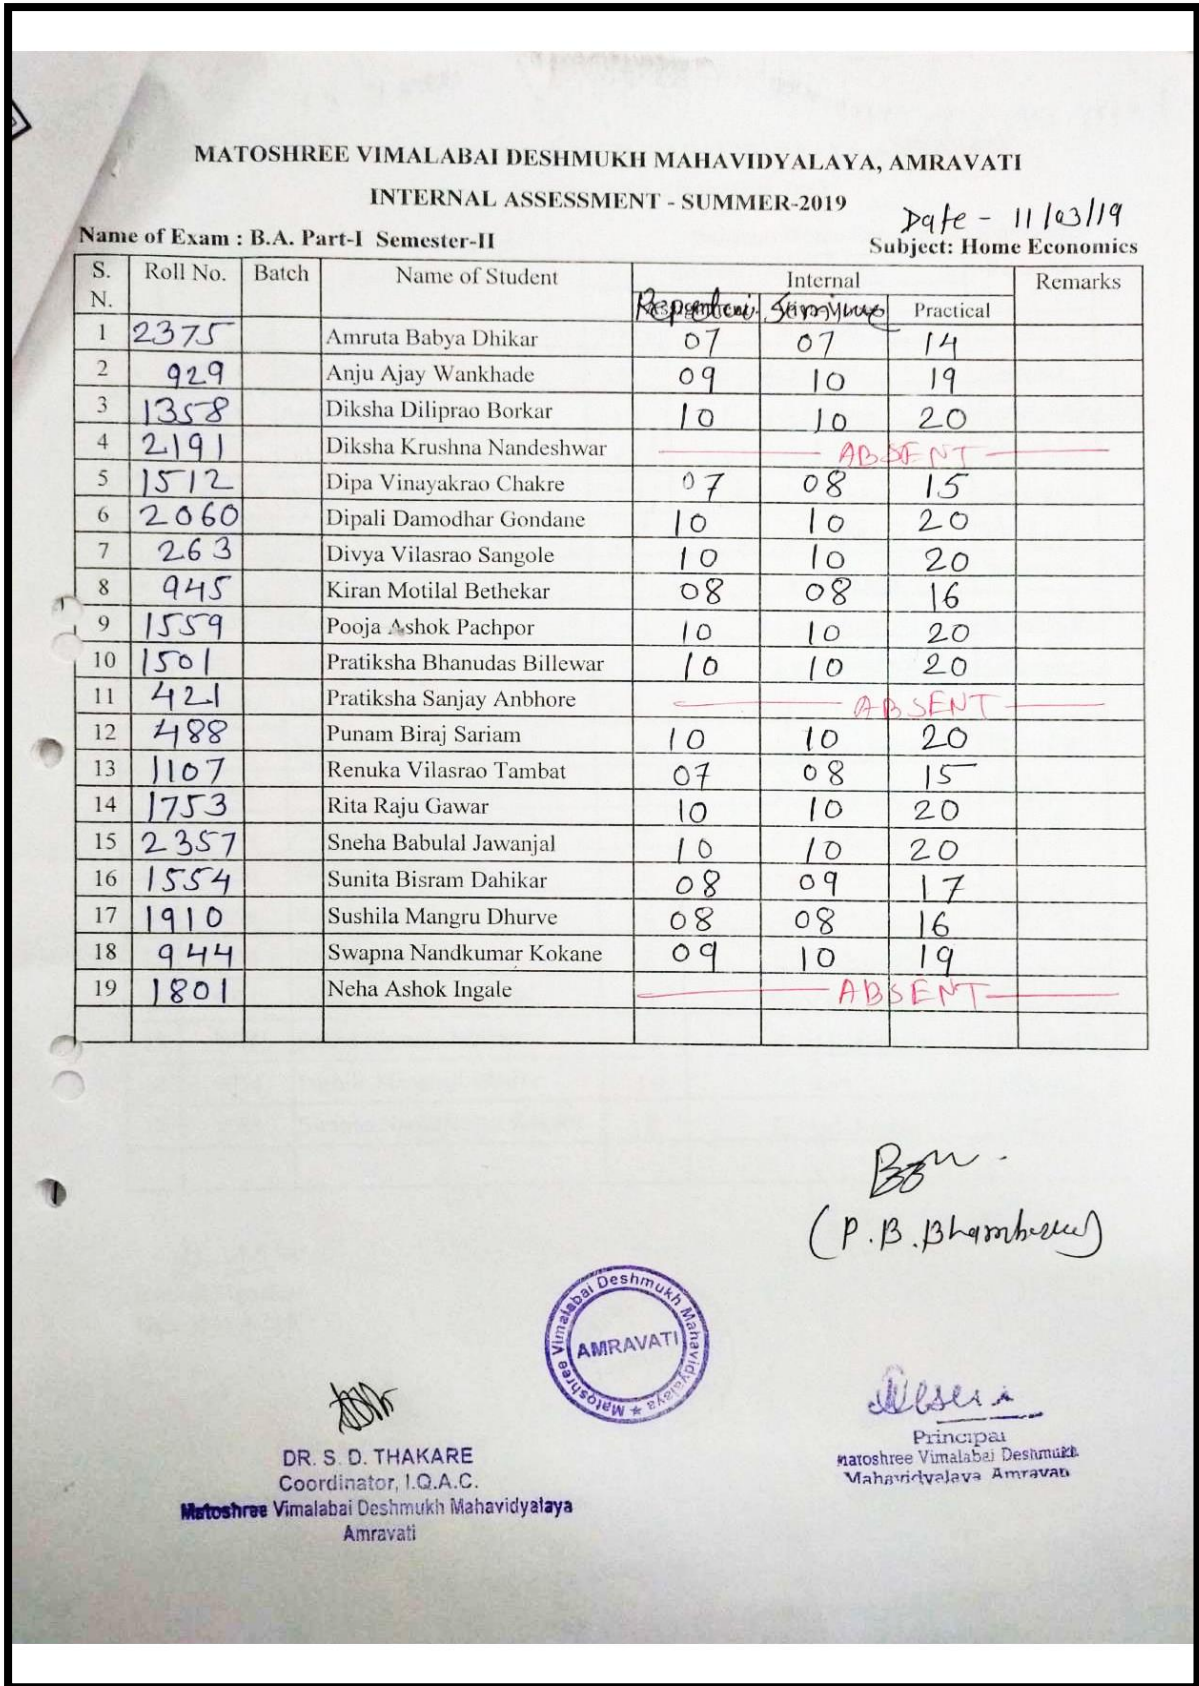 MATOSHREE VIMALABAI DESHMUKH MAHAVIDYALAYA, AMRAVATI
INTERNAL ASSESSMENT - SUMMER-2019
Date - 11/03/19
Name of Exam : B.A. Part-I Semester-II Subject: Home Economics
S. N. Roll No. Batch Name of Student Internal Remarks
Practical
1 2375 Amruta Babya Dhikar 07 07 14
2 929 Anju Ajay Wankhade 09 10 19
3 1358 Diksha Diliprao Borkar 10 10 20
4 2191 Diksha Krushna Nandeshwar ABSENT
5 1512 Dipa Vinayakrao Chakre 07 08 15
6 2060 Dipali Damodhar Gondane 10 10 20
7 263 Divya Vilasrao Sangole 10 10 20
8 945 Kiran Motilal Bethekar 08 08 16
9 1559 Pooja Ashok Pachpor 10 10 20
10 1501 Pratiksha Bhanudas Billewar 10 10 20
11 421 Pratiksha Sanjay Anbhore ABSENT
12 488 Punam Biraj Sariam 10 10 20
13 1107 Renuka Vilasrao Tambat 07 08 15
14 1753 Rita Raju Gawar 10 10 20
15 2357 Sneha Babulal Jawanjal 10 10 20
16 1554 Sunita Bisram Dahikar 08 09 17
17 1910 Sushila Mangru Dhurve 08 08 16
18 944 Swapna Nandkumar Kokane 09 10 19
19 1801 Neha Ashok Ingale ABSENT
(P. B.
Matoshree Vimalabai Deshmukh Mahavidyalaya
AMRAVATI
DR. S. D. THAKARE
Coordinator, I.Q.A.C.
Matoshree Vimalabai Deshmukh Mahavidyalaya
Amravati
Principal
Matoshree Vimalabai Deshmukh
Mahavidyalaya Amravati